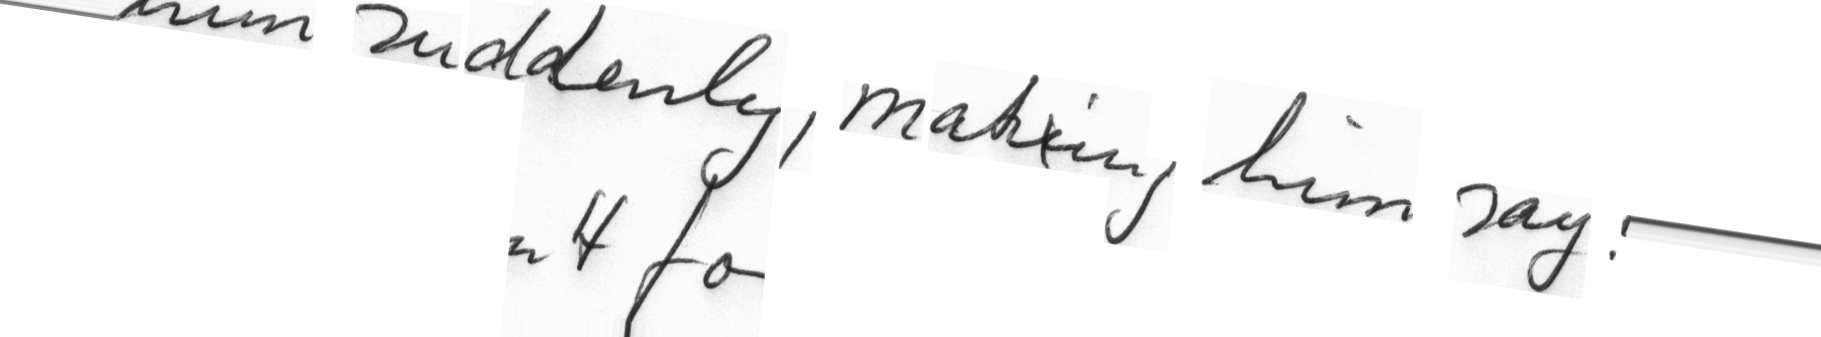 him suddenly, making him say: